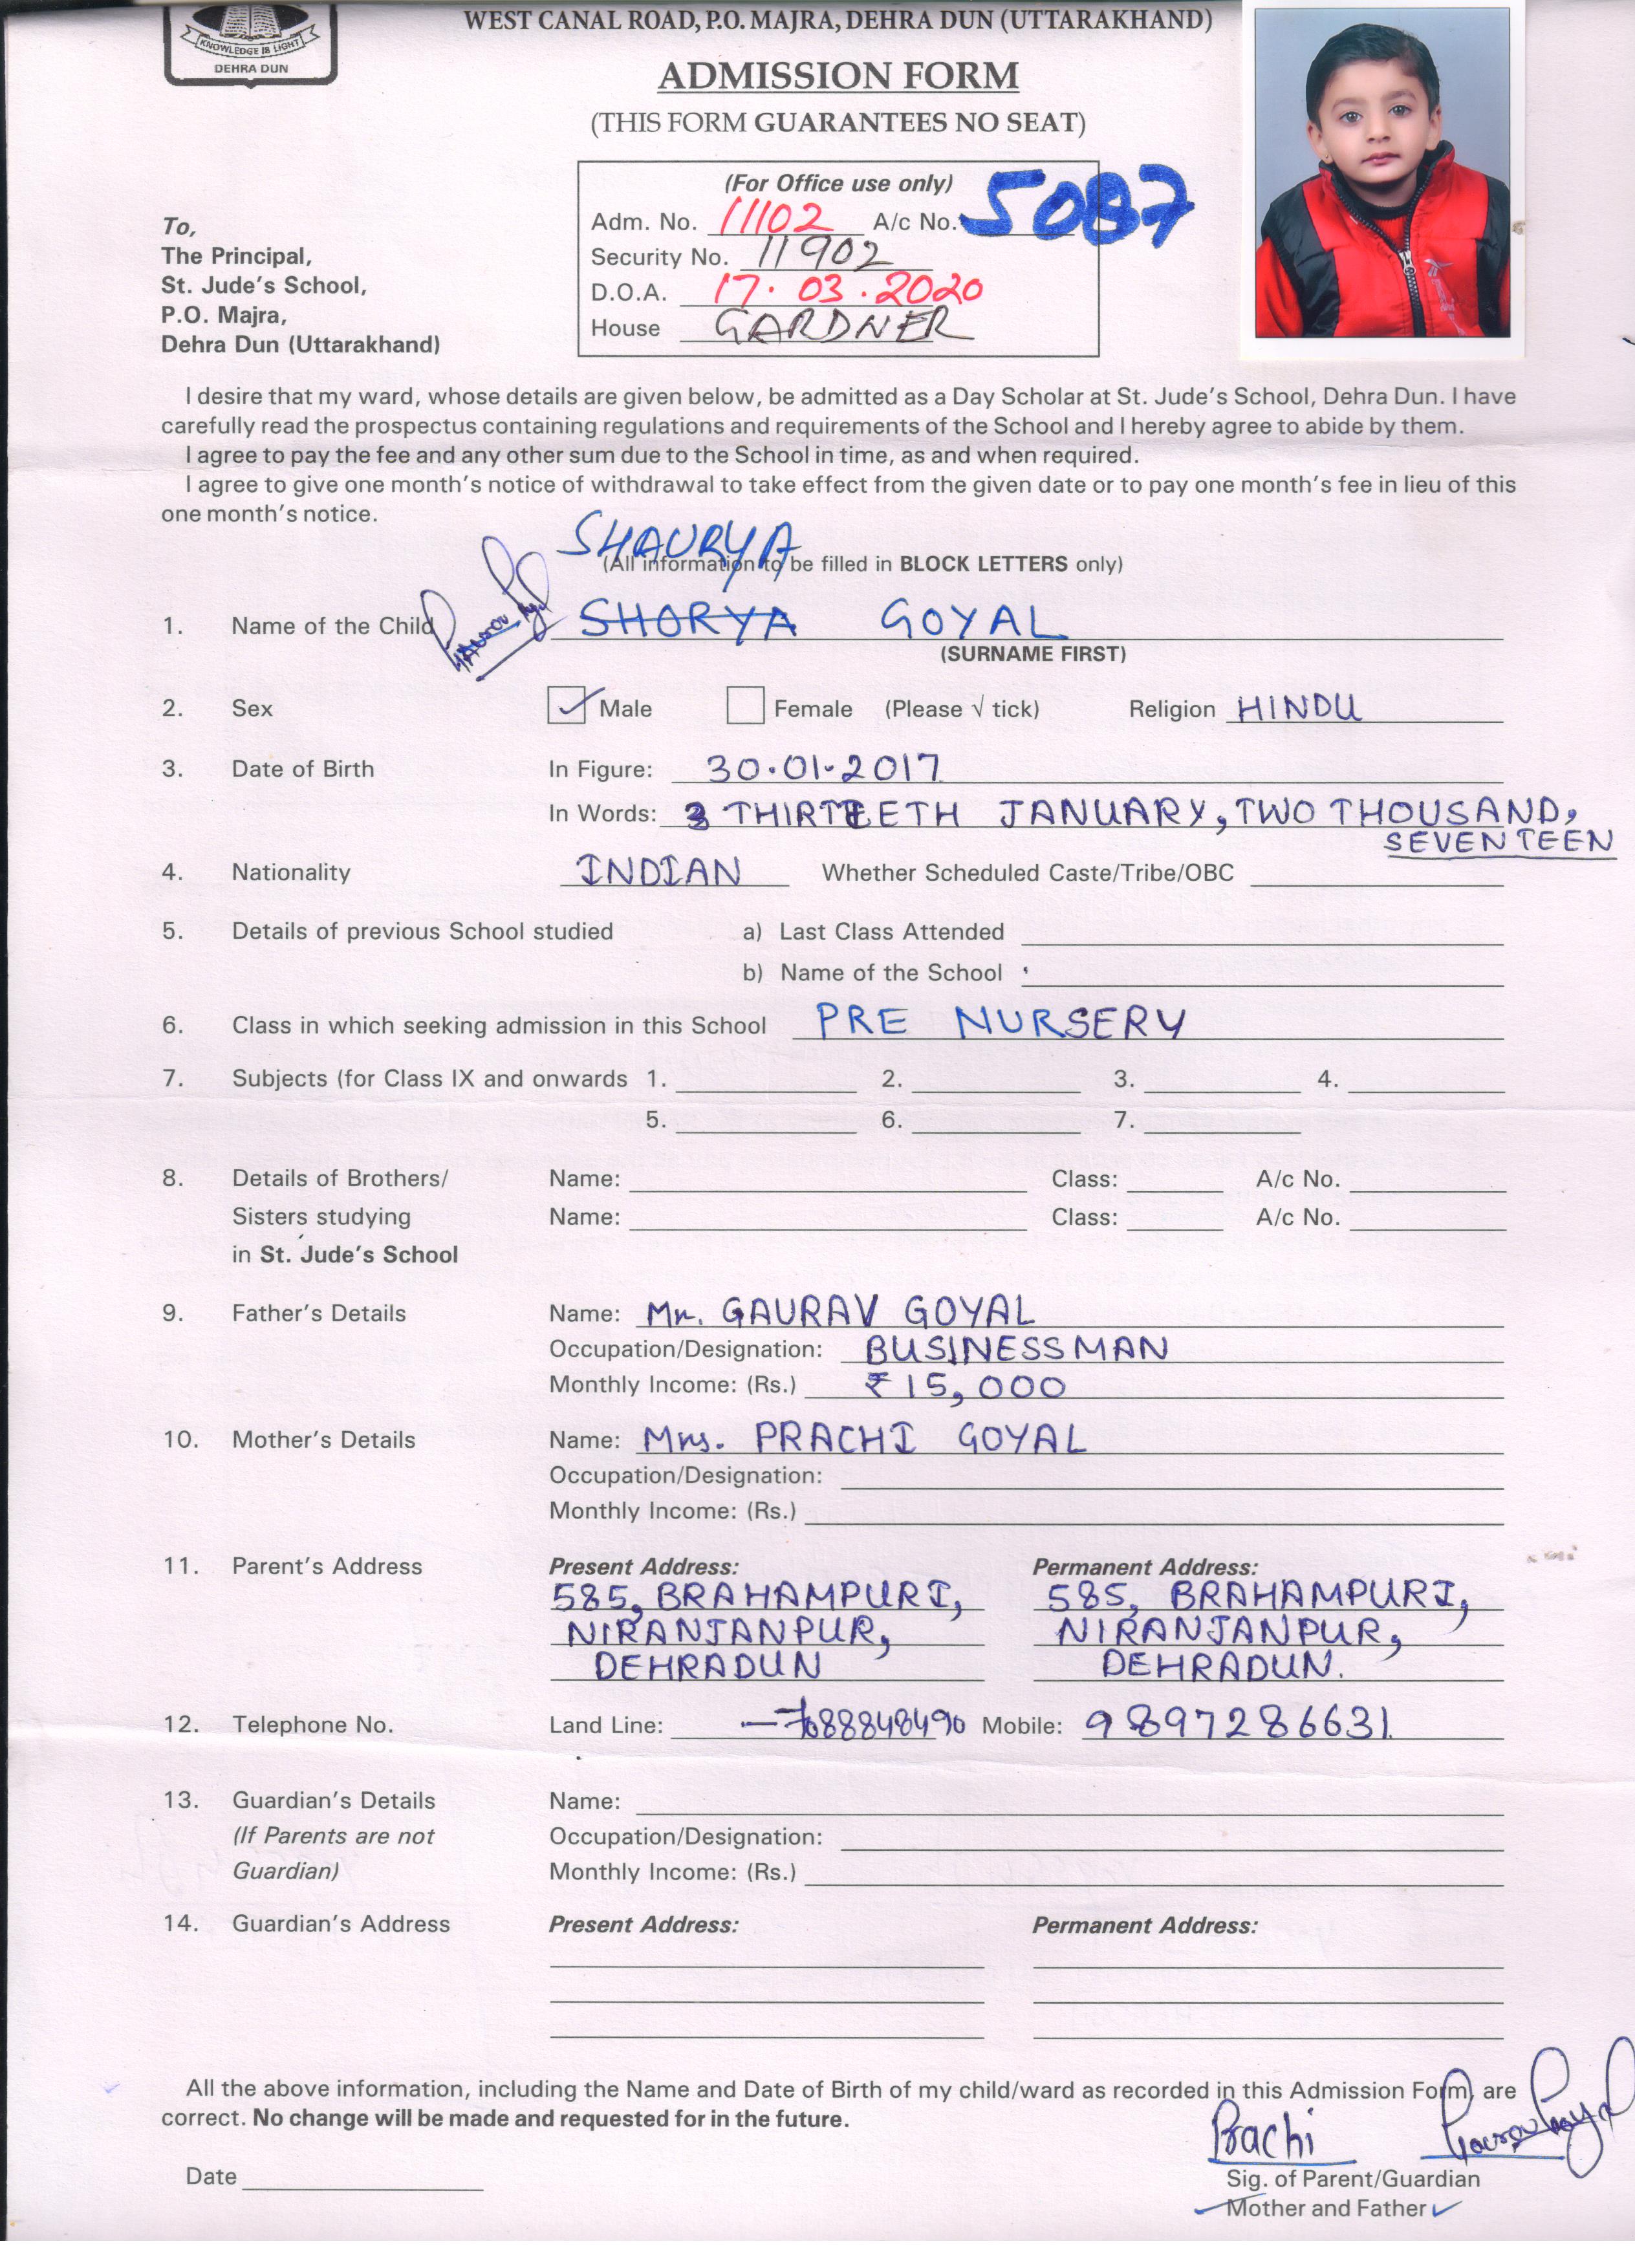 KNOWLEDGE IS LIGHT
DEHRA DUN
WEST CANAL ROAD, P.O. MAJRA, DEHRA DUN (UTTARAKHAND)
ADMISSION FORM
(THIS FORM GUARANTEES NO SEAT)
(For Office use only)
Adm. No. 11102 A/c No. 5087
Security No. 11902
D.O.A. 17.03.2020
House GARDNER
To,
The Principal,
St. Jude's School,
P.O. Majra,
Dehra Dun (Uttarakhand)
I desire that my ward, whose details are given below, be admitted as a Day Scholar at St. Jude's School, Dehra Dun. I have
carefully read the prospectus containing regulations and requirements of the School and I hereby agree to abide by them.
I agree to pay the fee and any other sum due to the School in time, as and when required.
I agree to give one month's notice of withdrawal to take effect from the given date or to pay one month's fee in lieu of this
one month's notice.
SHAURYA
(All information to be filled in BLOCK LETTERS only)
1. Name of the Child SHORYA GOYAL
(SURNAME FIRST)
2. Sex Male Female (Please √ tick) Religion HINDU
3. Date of Birth In Figure: 30.01.2017
In Words: THIRTEETH JANUARY, TWO THOUSAND,
SEVENTEEN
4. Nationality INDIAN Whether Scheduled Caste/Tribe/OBC
5. Details of previous School studied a) Last Class Attended
b) Name of the School
6. Class in which seeking admission in this School PRE NURSERY
7. Subjects (for Class IX and onwards 1. 2. 3. 4.
5. 6. 7.
8. Details of Brothers/ Name: Class: A/c No.
Sisters studying Name: Class: A/c No.
in St. Jude's School
9. Father's Details Name: Mr. GAURAV GOYAL
Occupation/Designation: BUSINESSMAN
Monthly Income: (Rs.) ₹15,000
10. Mother's Details Name: Mrs. PRACHI GOYAL
Occupation/Designation:
Monthly Income: (Rs.)
11. Parent's Address Present Address: Permanent Address:
585, BRAHAMPURI, 585, BRAHAMPURI,
NIRANJANPUR, NIRANJANPUR,
DEHRADUN DEHRADUN.
12. Telephone No. Land Line: Mobile: 9897286631
13. Guardian's Details Name:
(If Parents are not Occupation/Designation:
Guardian) Monthly Income: (Rs.)
14. Guardian's Address Present Address: Permanent Address:
All the above information, including the Name and Date of Birth of my child/ward as recorded in this Admission Form, are
correct. No change will be made and requested for in the future.
Prachi
Date Sig. of Parent/Guardian
Mother and Father